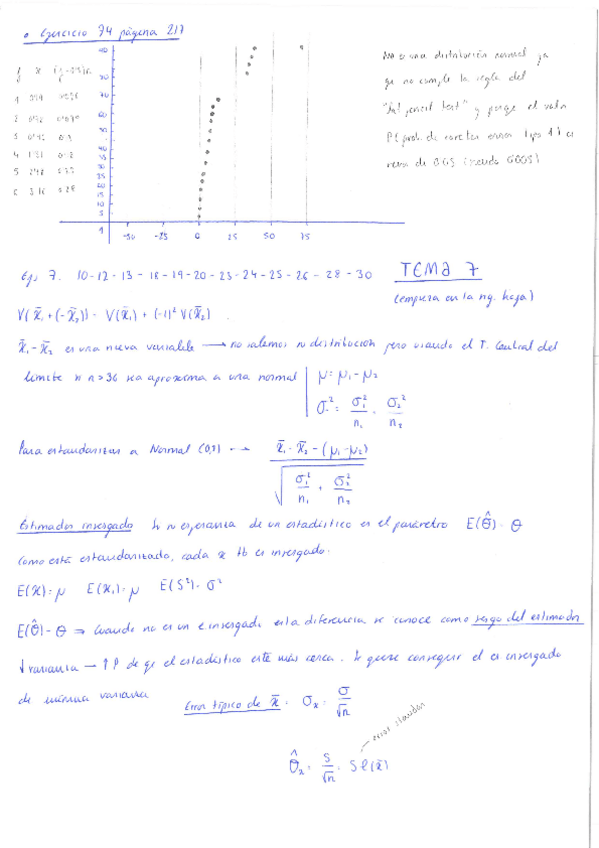 • Ejercicio 74 página 217
No es una distribución normal ya
que no cumple la regla del
"fat pencil test" y porque el valor
P (prob. de cometer error tipo 1) es
menor de 0'05 (siendo 0'005)
j x (j-0'5)/c
-50 -25 0 25 50 75
Ejs 7. 10-12-13-18-19-20-23-24-25-26-28-30 TEMA 7
(empieza en la sig. hoja)
V(X̄₁+(-X̄₂)) = V(X̄₁) + (-1)² V(X̄₂)
X̄₁-X̄₂ es una nueva variable → no sabemos su distribución pero usando el T. Central del
límite si n>30 se aproxima a una normal | μ = μ₁-μ₂
σ² = σ₁²/n₁ + σ₂²/n₂
Para estandarizar a Normal (0,1) → (X̄₁-X̄₂-(μ₁-μ₂)) / √(σ₁²/n₁ + σ₂²/n₂)
Estimador insesgado ↳ su esperanza de un estadístico es el parámetro E(θ̂) = θ
como está estandarizado, cada x tb es insesgado.
E(X) = μ E(X₁) = μ E(S²) = σ²
E(θ̂)-θ ⇒ cuando no es un e insesgado esta diferencia se conoce como sesgo del estimador
↓ varianza → ↑P de q el estadístico esté más cerca. Se quiere conseguir el es insesgado
de mínima varianza
Error típico de x̄ = σx = σ/√n
σ̂x = S/√n = Se(x̄) → error standar